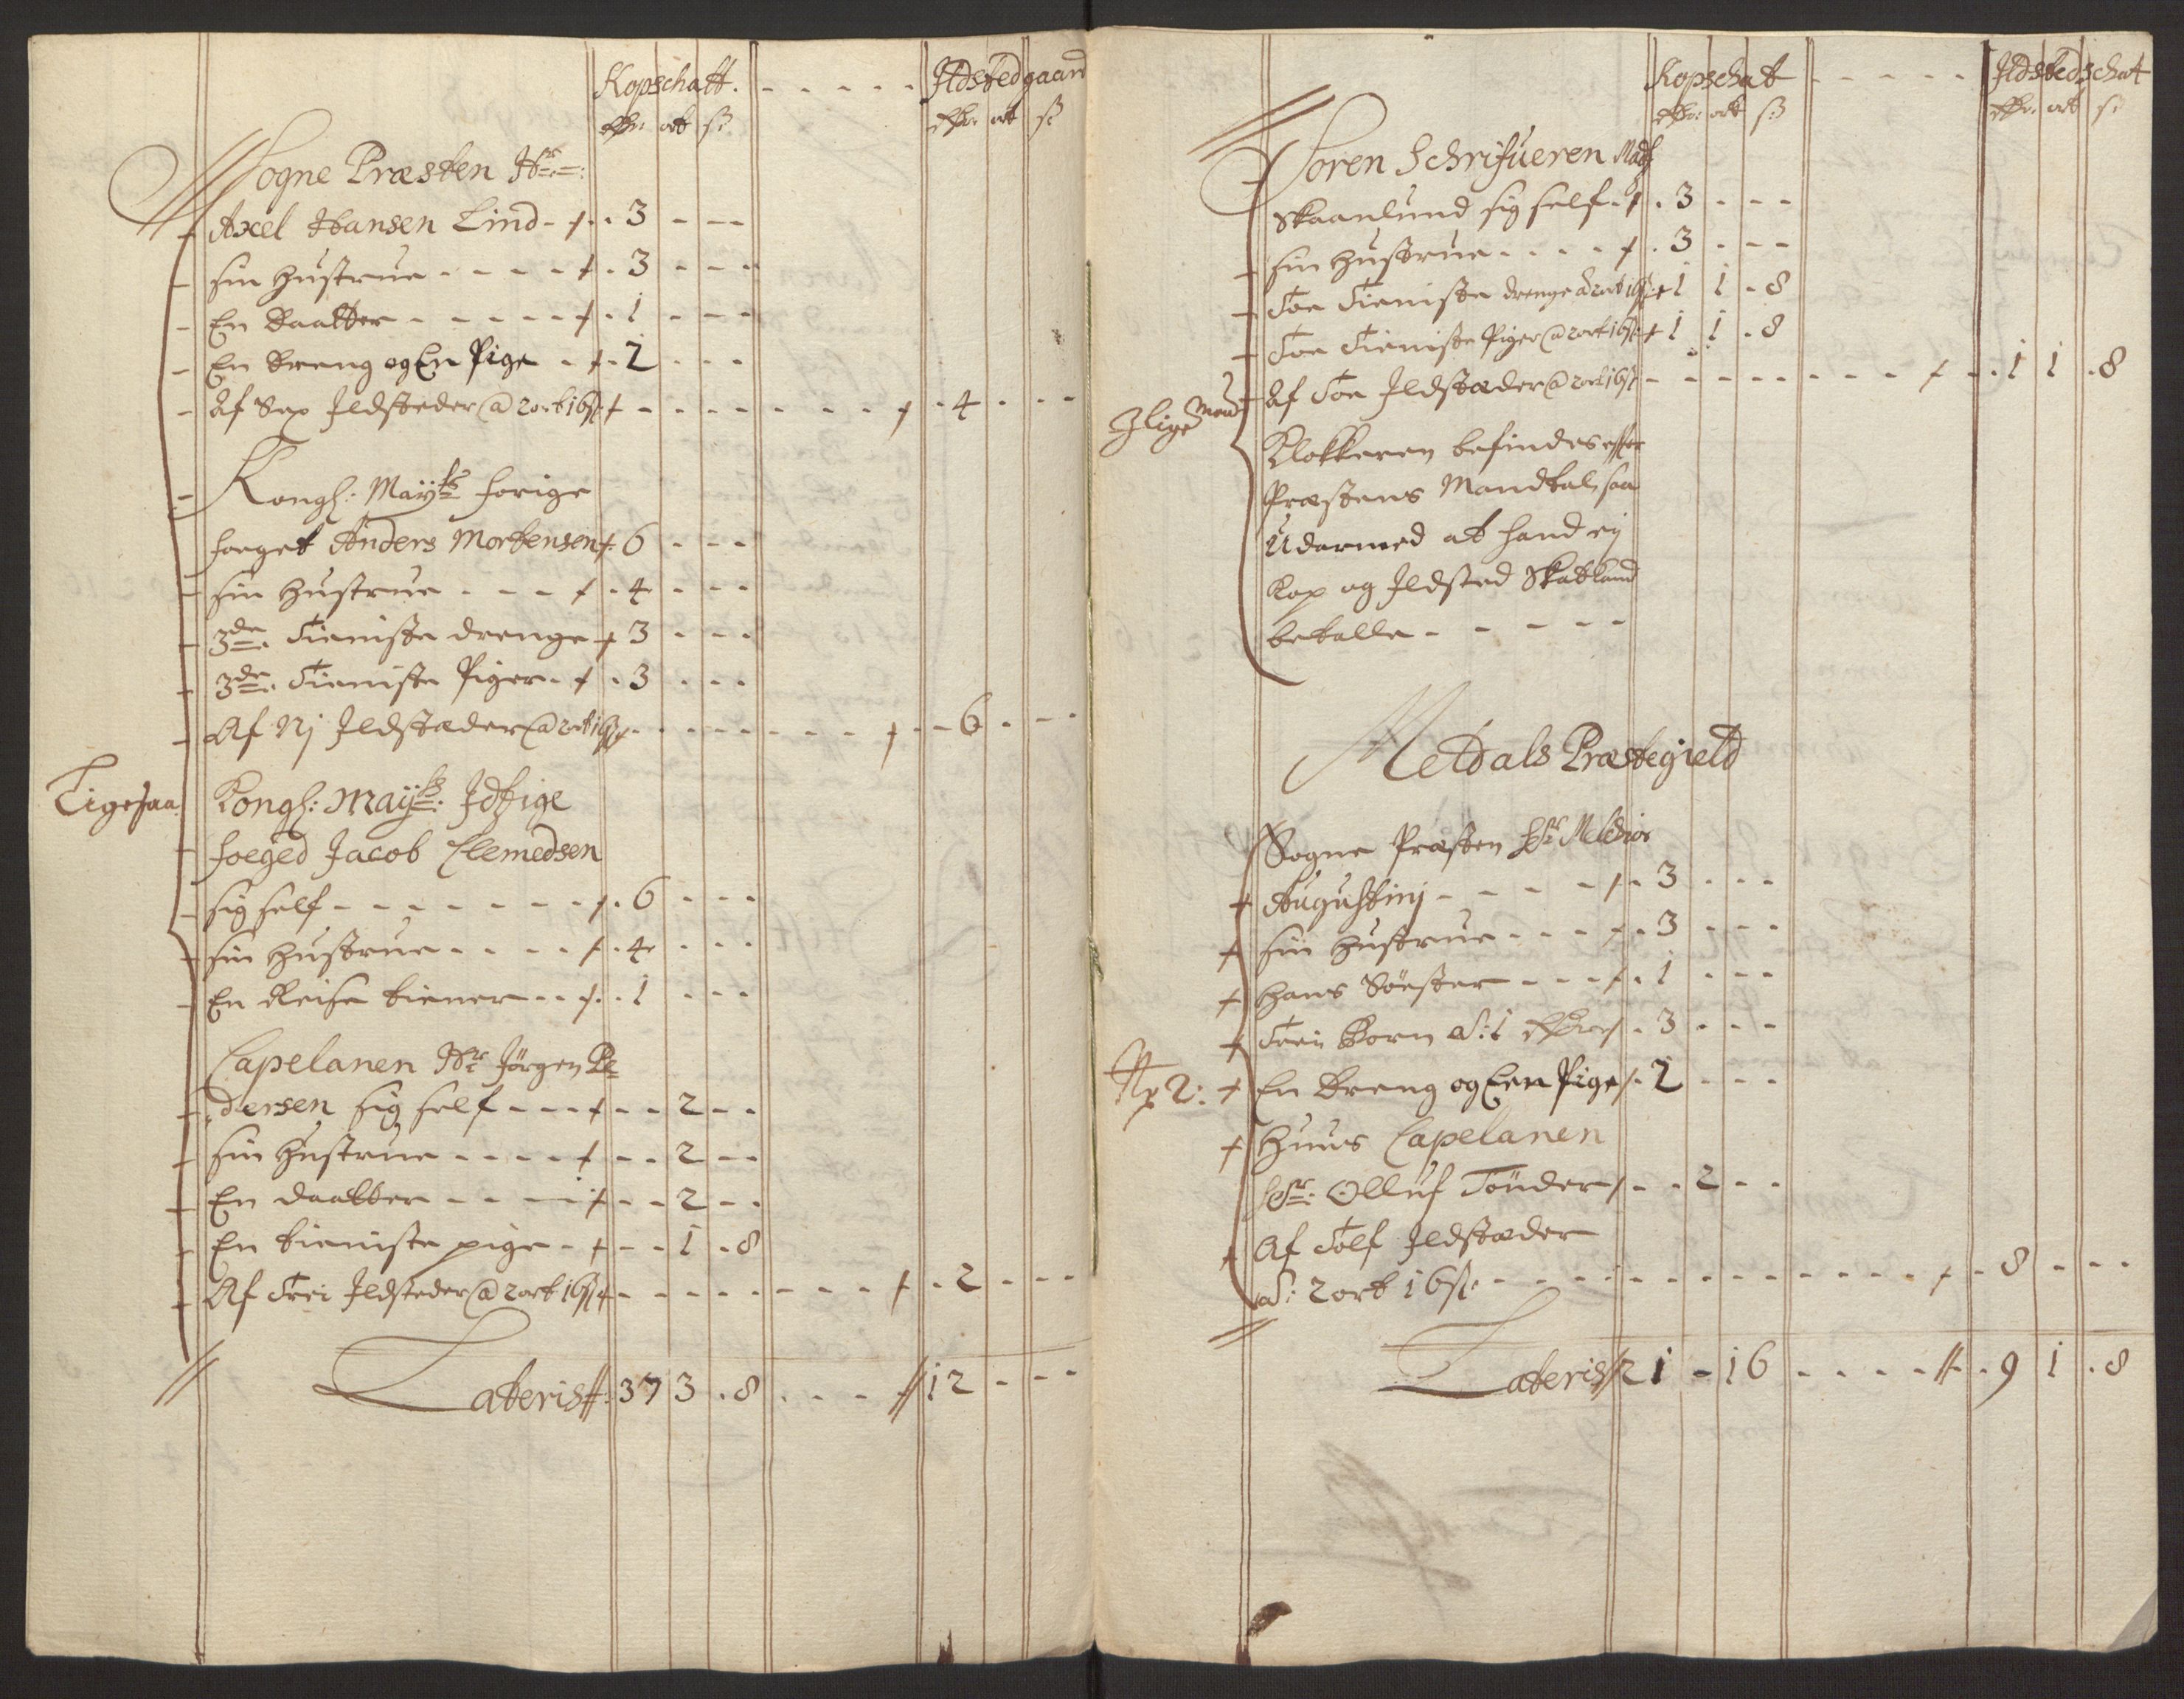 Kopschatt. - - - - - Ildsted gaard
Rdr: ort ß: Rdr: ort ß
Sogne Præsten Hr:
Axel Hansen Lind - 3 - -
sin Hustrue - - - - 3 - - -
En Daatter - - - - - 1 - - -
En Dreng og En Pige - 2 - - -
Af Sex Ildsteder @ 2 ort 16 ß - - - - - - 4 - - -
Kongl: Mayts forige
foeget Anders Mortensen 6 - - -
sin Hustrue - - - 4 - - -
3de Tieniste drenge 3 - - -
3de Tieniste Piger - 3 - - -
Af Nj Ildstæder @ 2 ort 16 ß - - - - - - 6 - - -
Ligesaa
Kongl: Mayts: Idtzige
foeged Jacob Clemedsen
sig self - - - - - - 6 - - -
sin Hustrue - - - - 4 - - -
En Reise tiener - - 1 - - -
Capelanen Hr Jörgen Pe
dersen sig self - - - - - 2 - -
sin Hustrue - - - - - - 2 - -
En daatter - - - - - 2 - -
En tieniste pige - - - 1 - 8
Af Trei Ildsteder @ 2 ort 16 ß - - - - - - 2 - - -
Lateris 37 3 - 8 - - - 12 - - -
Kopschat - - - - - Ildstedschat
Rdr: ort ß: Rdr: ort ß:
Soren Schrifueren Madß
Skaanlund sig self - 3 - - -
sin Hustrue - - - - 3 - - -
Toe Tieniste drenge a 2 ort 16 ß 1 1 - 8
Toe Tieniste Piger @ 2 ort 16 ß 1 1 - 8
Af Toe Ildstæder @ 2 ort 16 ß - - - - - - - 1 1 - 8
Klokkeren befindes effter
Præstens Mandtal, saa
Udarmed at hand ej
Kop og Ildsted Skat kand
betalle - - - - -
Meldals Præstegield
Sogne Præsten Hr Melchior
Augustinj - - - - 3 - - -
sin Hustrue - - - 3 - - -
Hans Söster - - - 1 - - -
Trei Born a: 1 Rdr 3 - - -
No 2:
En Dreng og Een Pige 2 - - -
Huus Capelanen
Hr: Olluf Tönder - - 2 - -
Af Tolf Ildstæder
a: 2 ort 16 ß: - - - - - - - - - - - 8 - - -
Lateris 21 - 16 - - - - 9 1 - 8